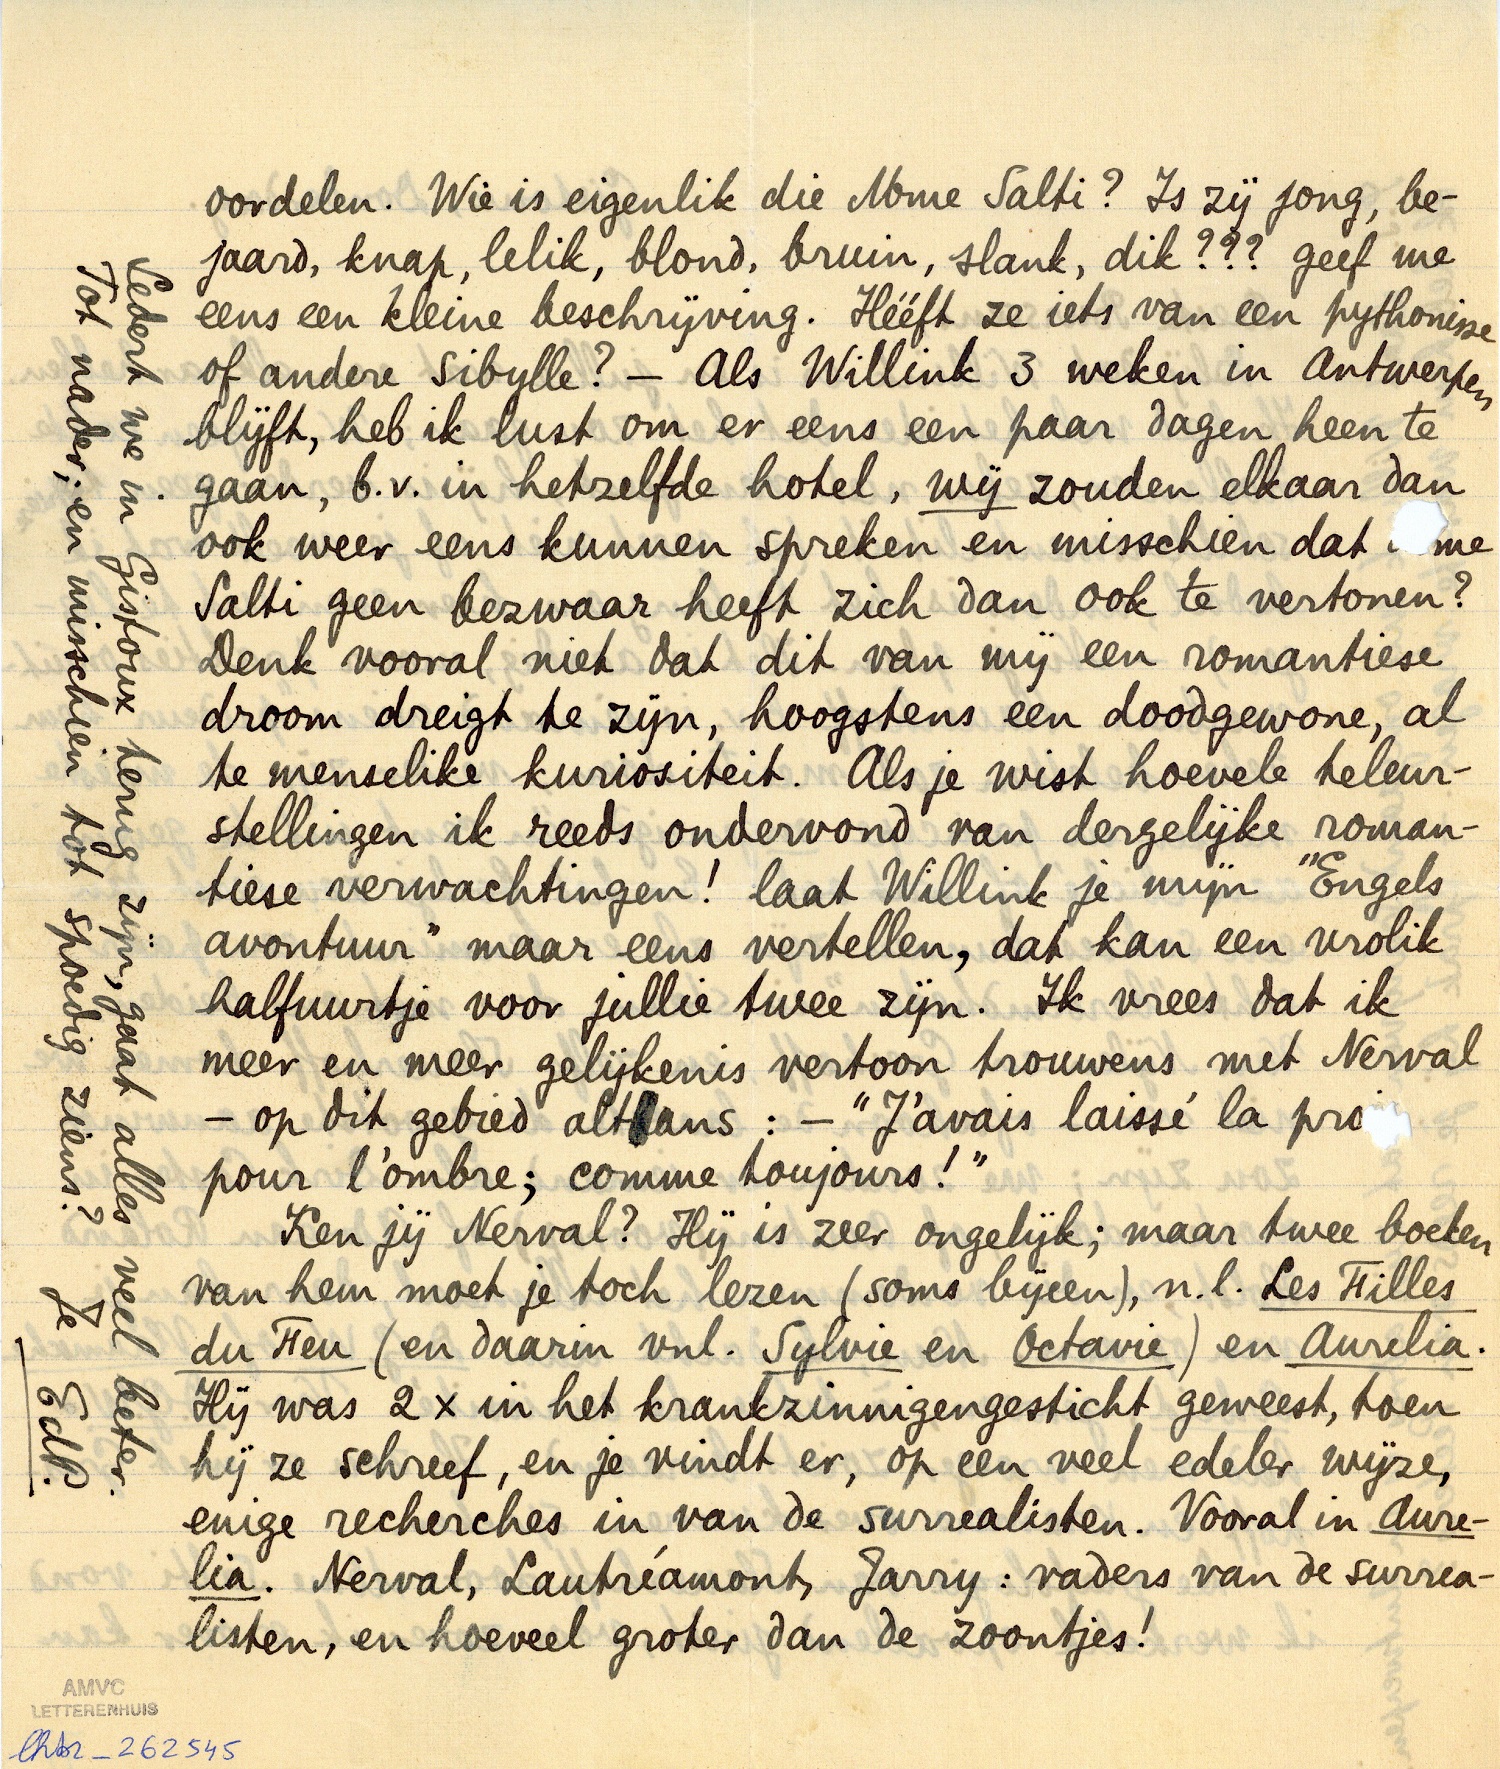 oordelen. Wie is eigenlik die Mme Salti? Is zij jong, be-
jaard, knap, lelik, blond, bruin, slank, dik??? geef me
eens een kleine beschrijving. Hééft ze iets van een pythonisse
of andere Sibylle? — Als Willink 3 weken in Antwerpen
blijft, heb ik lust om er eens een paar dagen heen te
gaan, b.v. in hetzelfde hotel, wij zouden elkaar dan
ook weer eens kunnen spreken en misschien dat me
Salti geen bezwaar heeft zich dan ook te vertonen?
Denk vooral niet dat dit van mij een romantiese
droom dreigt te zijn, hoogstens een doodgewone, al
te menselike kuriositeit. Als je wist hoevele teleur-
stellingen ik reeds ondervond van dergelijke roman-
tiese verwachtingen! laat Willink je mijn "Engels
avontuur" maar eens vertellen, dat kan een vrolik
halfuurtje voor jullie twee zijn. Ik vrees dat ik
meer en meer gelijkenis vertoon trouwens met Nerval
— op dit gebied althans : — "J'avais laissé la proi
pour l'ombre; comme toujours!"
Ken jij Nerval? Hij is zeer ongelijk; maar twee boeken
van hem moet je toch lezen (soms bijeen), n.l. Les Filles
du Feu (en daarin vnl. Sylvie en Octavie) en Aurelia.
Hij was 2 x in het krankzinnigengesticht geweest, toen
hij ze schreef, en je vindt er, op een veel edeler wijze,
enige recherches in van de surrealisten. Vooral in Aure-
lia. Nerval, Lautréamont, Jarry : vaders van de surrea-
listen, en hoeveel groter dan de zoontjes!
Sedert we in Gistoux terug zijn, gaat alles veel beter.
Tot nader; en misschien tot spoedig ziens?
Je
EdP.
AMVC
LETTERENHUIS
lhbr_262545